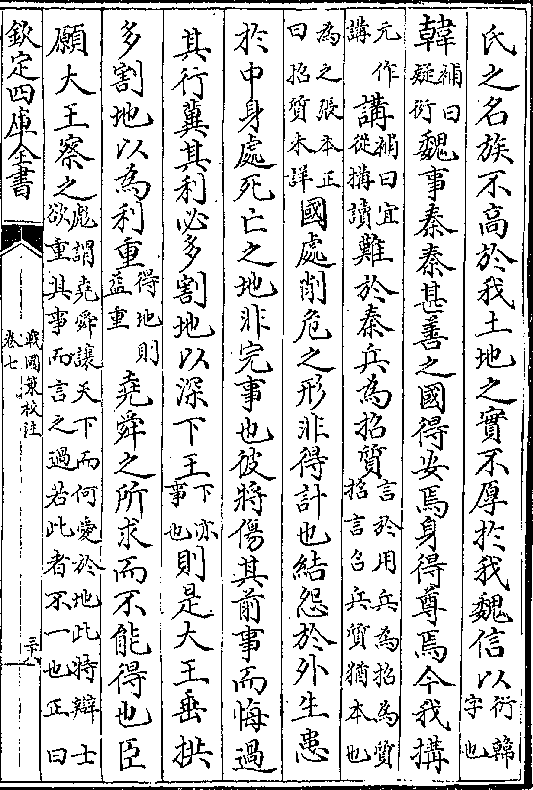 氏之名族不高於我土地之實不厚於我魏信以衍韓字也
韓補曰疑衍魏事秦秦甚善之國得安焉身得尊焉今我搆
元作講講補曰宜從搆讀難於秦兵為招質言於用兵為招為質招言召兵質猶本也
為之張本正曰招質未詳國處削危之形非得計也結怨於外生患
於中身處死亡之地非完事也彼將傷其前事而悔過
其行冀其利必多割地以深下王下亦事也則是大王垂拱
多割地以為利重得地則益重堯舜之所求而不能得也臣
願大王察之彪謂堯舜讓天下而何愛於地此特辯士欲重其事而言之過若此者不一也正曰
欽定四庫全書
戰國策校注
卷七